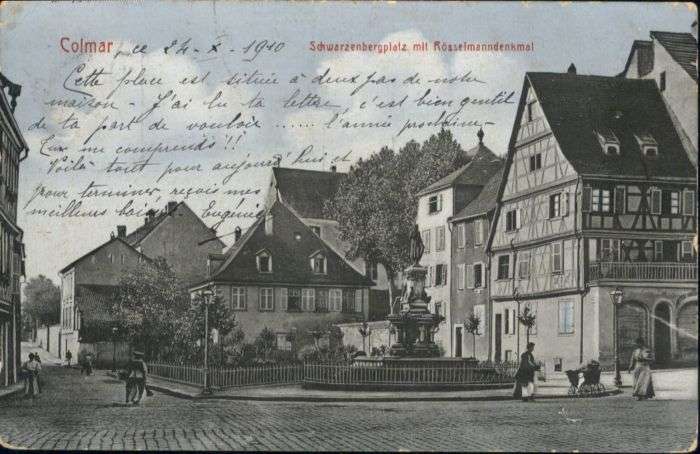 Colmar, ce 24-X-1910
Schwarzenbergplatz mit Rösselmanndenkmal
Cette place est située à deux pas de notre
maison - J'ai lu ta lettre, c'est bien gentil
de ta part de vouloir ..... l'année prochaine -
me comprends !!
Voilà tout pour aujourd'hui et
pour terminer, reçois mes
meilleurs Eugénie